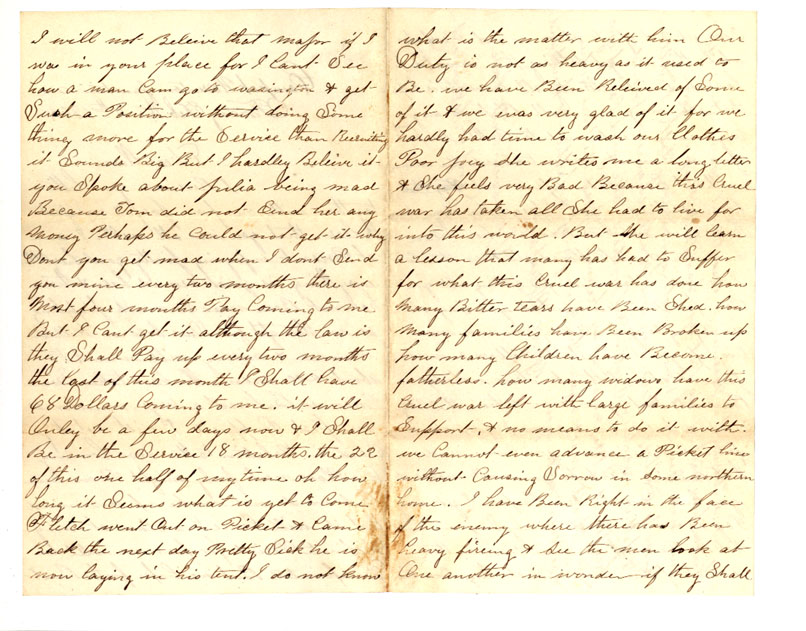 I will not Beleive that major if I
was in your place for I Cant See
how a man Cam go to wasington & get
Such a Position without doing Some
thing more for the Servise than Recruiting
it Sounds Big But I hardley Beleive it
you Spoke about julia being mad
Because Tom did not Send her any
Money Perhaps he Could not get it why
Dont you get mad when I dont Send
you mine every two months there is
Most four months Pay Coming to me
But I Cant get it although the law is
they Shall Pay up every two months
the last of this month I Shall have
68 Dollars Coming to me. it will
Onley be a few days now & I Shall
Be in the Service 18 months. the 22
of this one half of my time oh how
long it Seems what is yet to Come
Fletch went Out on Picket & Came
Back the next day Pretty Sick he is
now laying in his tent. I do not know
what is the matter with him Our
Duty is not as heavy as it used to
Be. we have Been Releived of Some
of it & we was very glad of it for we
hardly had time to wash our Clothes
Poor She writes me a long letter
& She feels very Bad Because this Cruel
war has taken all She had to live for
into this world. But She will learn
a lesson that many has had to Suffer
for what this Cruel war has done how
Many Bitter tears have Been Shed. how
many families have Been Broken up
how many Children have Become.
fatherless. how many widows have this
Cruel war left with large families to
Support. & no means to do it with.
we Cannot even advance a Picket line
without Causing Sorrow in Some northern
home. I have Been Right in the face
of the enemy where there has Been
heavy fireing & See the men look at
One another in wonder if they Shall